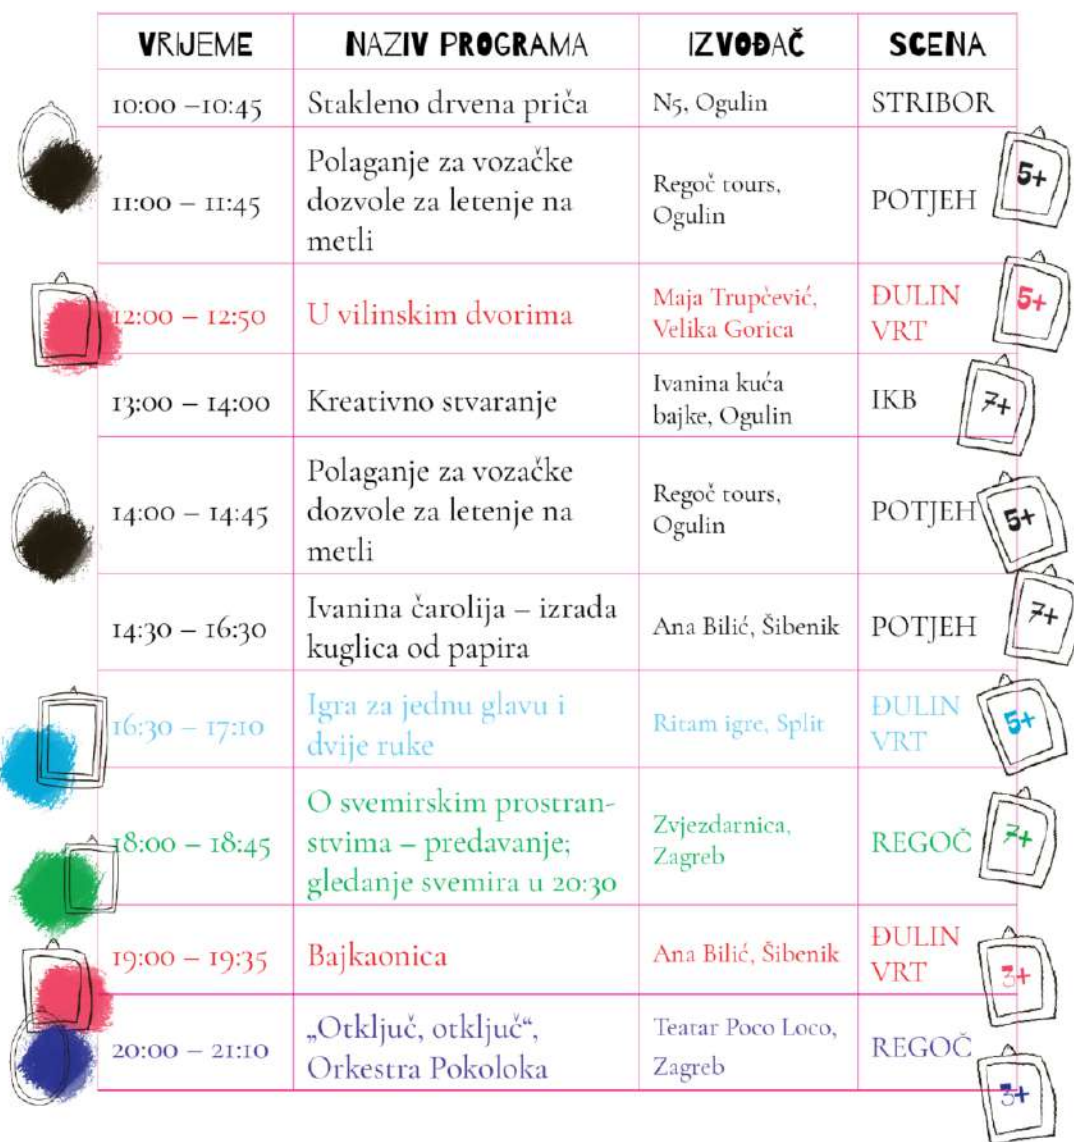 VRIJEME NAZIV PROGRAMA IZVOĐAČ SCENA
10:00 –10:45 Stakleno drvena priča N5, Ogulin STRIBOR
Polaganje za vozačke
dozvole za letenje na
metli
11:00 – 11:45
Regoč tours,
Ogulin
POTJEH
5+
12:00 – 12:50 U vilinskim dvorima
Maja Trupčević,
Velika Gorica
ĐULIN
VRT
5+
13:00 – 14:00 Kreativno stvaranje
Ivanina kuća
bajke, Ogulin
IKB
7+
14:00 – 14:45
Polaganje za vozačke
dozvole za letenje na
metli
Regoč tours,
Ogulin
POTJEH
5+
14:30 – 16:30
Ivanina čarolija – izrada
kuglica od papira
Ana Bilić, Šibenik
POTJEH
7+
16:30 – 17:10
Igra za jednu glavu i
dvije ruke
Ritam igre, Split
ĐULIN
VRT
5+
18:00 – 18:45
O svemirskim prostran-
stvima – predavanje;
gledanje svemira u 20:30
Zvjezdarnica,
Zagreb
REGOČ
7+
19:00 – 19:35
Bajkaonica
Ana Bilić, Šibenik
ĐULIN
VRT
3+
20:00 – 21:10
„Otključ, otključ“,
Orkestra Pokoloka
Teatar Poco Loco,
Zagreb
REGOČ
3+